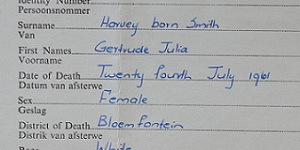 Identity Number
Persoonsnommer
Surname Harvey born Smith
Van
First Names Gertrude Julia
Voorname
Date of Death Twenty fourth July 1961
Datum van afsterwe
Sex Female
Geslag
District of Death Bloemfontein
Distrik van afsterwe
Race White